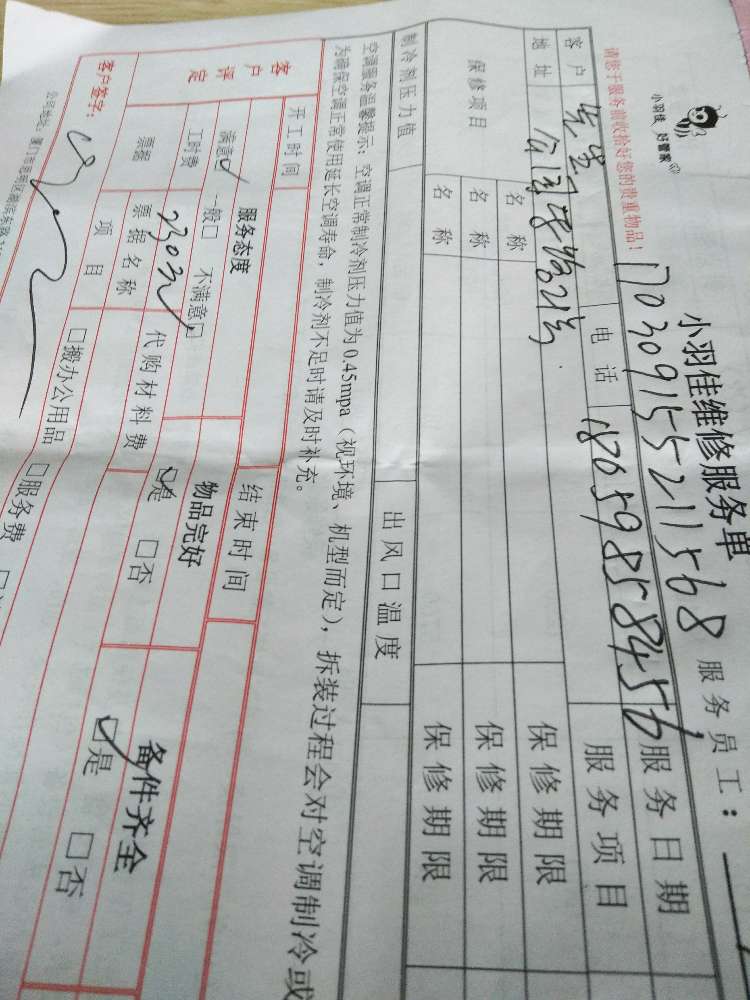 小羽佳 好管家
小羽佳维修服务单
请您于服务前收拾好您的贵重物品!
170309155211568
服务员工:
客户 先生 电话 18659858456 服务日期
地址 服务项目
保修项目 名称 保修期限
名称 保修期限
名称 保修期限
制冷剂压力值 出风口温度
空调服务温馨提示:空调正常制冷剂压力值为0.45mpa(视环境、机型而定),拆装过程会对空调制冷或
为确保空调正常使用延长空调寿命,制冷剂不足时请及时补充。
客户评定 开工时间 结束时间
服务态度 物品完好 备件齐全
满意☑ 一般□ 不满意□ ☑是 □否 ☑是 □否
工时费 230元 代购材料费
票据 票据名称 □搬办公用品 □服务费
项目
客户签字:
公司地址:厦门市思明区